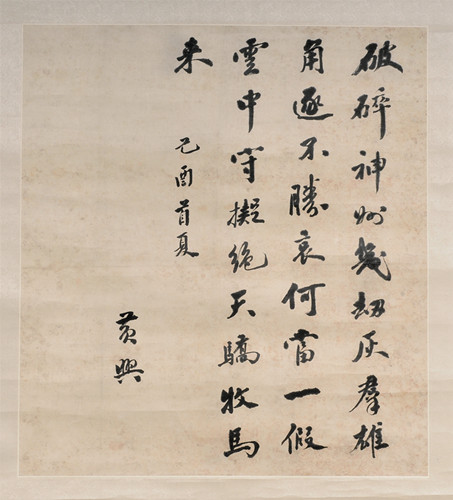 破碎神州幾劫灰羣雄
角逐不勝哀何當一假
雲中守擬絶天驕牧馬
来
己酉首夏
黄興